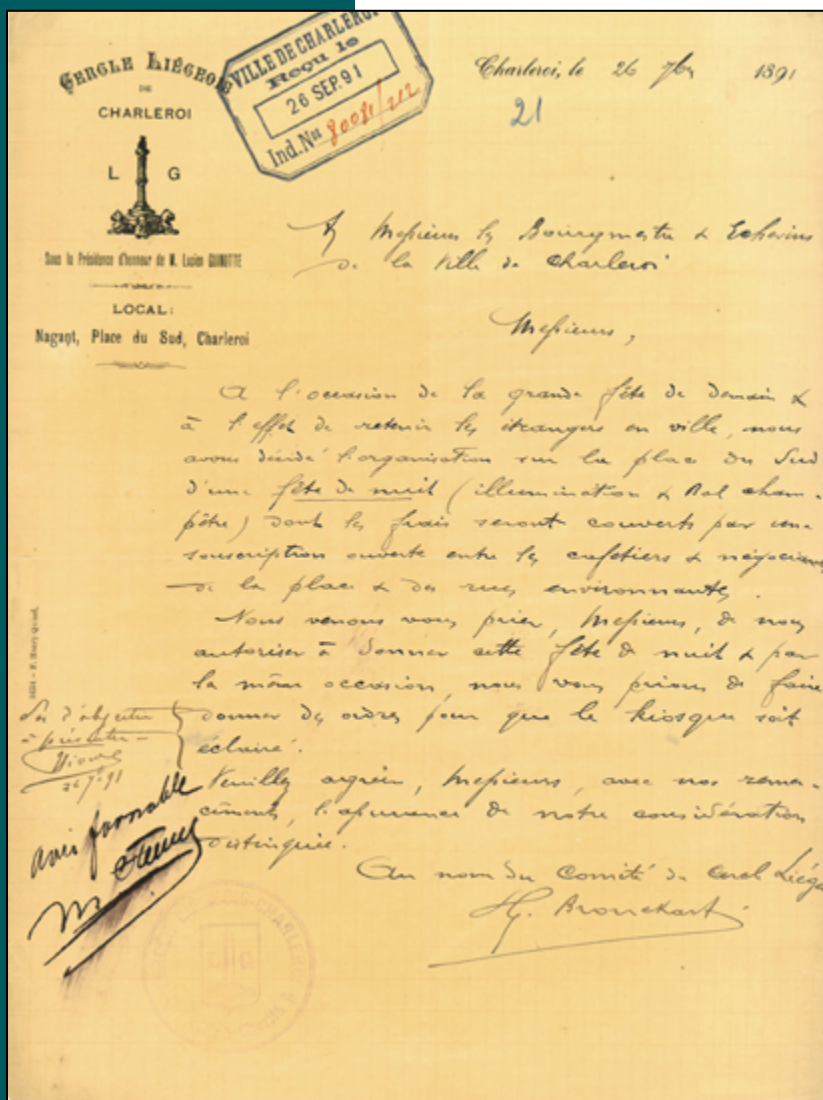 CERCLE LIÉGEOIS
DE
CHARLEROI
L G
Sous la Présidence d'honneur de M. Lucien GUINOTTE
LOCAL:
Nagant, Place du Sud, Charleroi
VILLE DE CHARLEROI
Reçu le
26 SEP. 91
Ind. Nos 80081/212
Charleroi, le 26 7bre 1891
21
A Messieurs les Bourgmestre & Echevins
de la Ville de Charleroi
Messieurs,
A l'occasion de la grande fête de demain &
à l'effet de retenir les étrangers en ville, nous
avons décidé l'organisation sur la place du Sud
d'une fête de nuit (illumination & Bal cham-
pêtre) dont les frais seront couverts par une
souscription ouverte entre les cafetiers & négociants
de la place & des rues environnantes.
Nous venons vous prier, Messieurs, de nous
autoriser à donner cette fête de nuit & par
la même occasion, nous vous prions de faire
donner des ordres pour que le kiosque soit
éclairé.
Veuillez agréer, Messieurs, avec nos remer-
ciments, l'assurance de notre considération
distinguée.
Au nom du Comité du Cercle Liégeois
Hy. Bronckart
Pas d'objection
à présenter
26 7bre 91
avis favorable